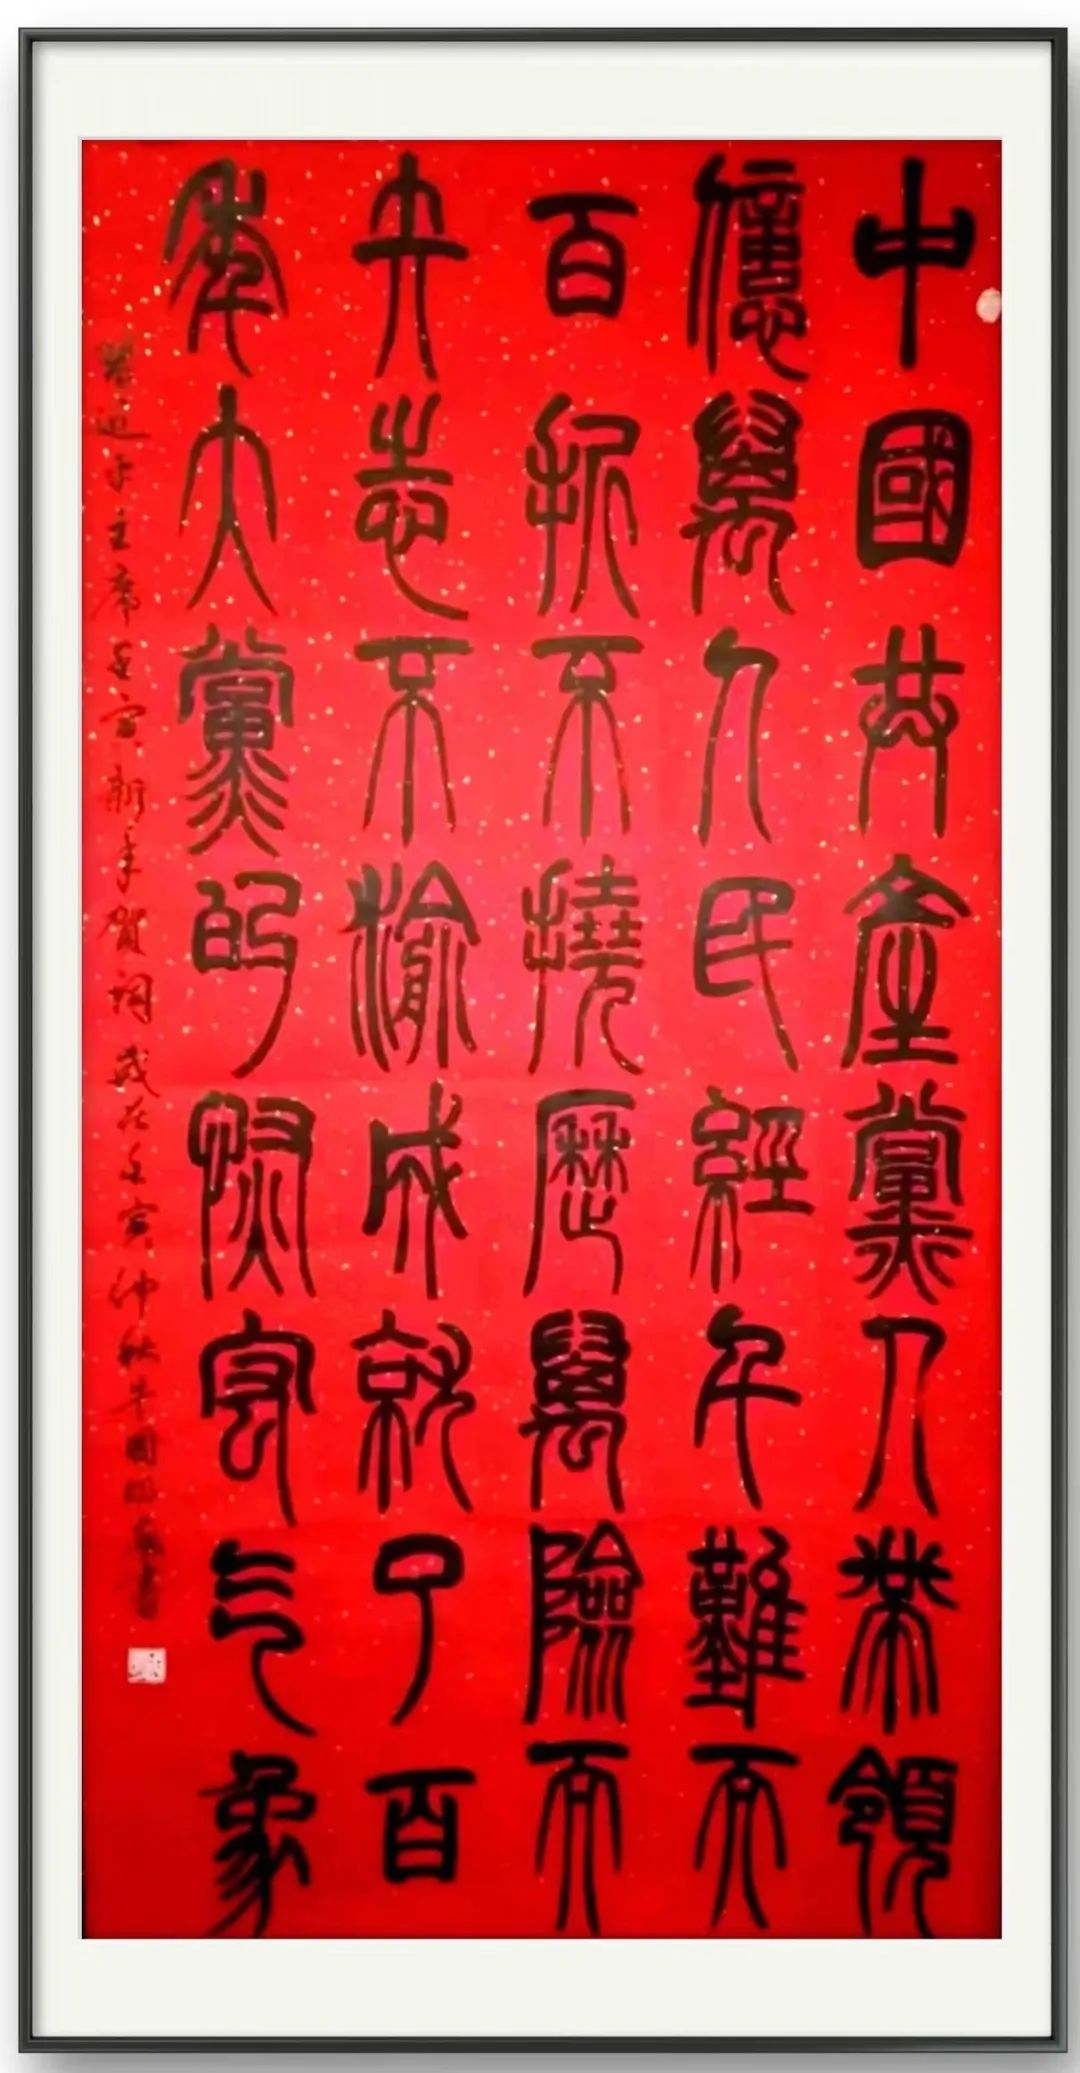 中國共產黨人帶領
億萬人民經千難而
百折不撓歷萬險而
矢志不渝成就了百
年大黨的恢宏气象
習近平主席壬寅新年賀詞歲在壬寅仲秋牛國書